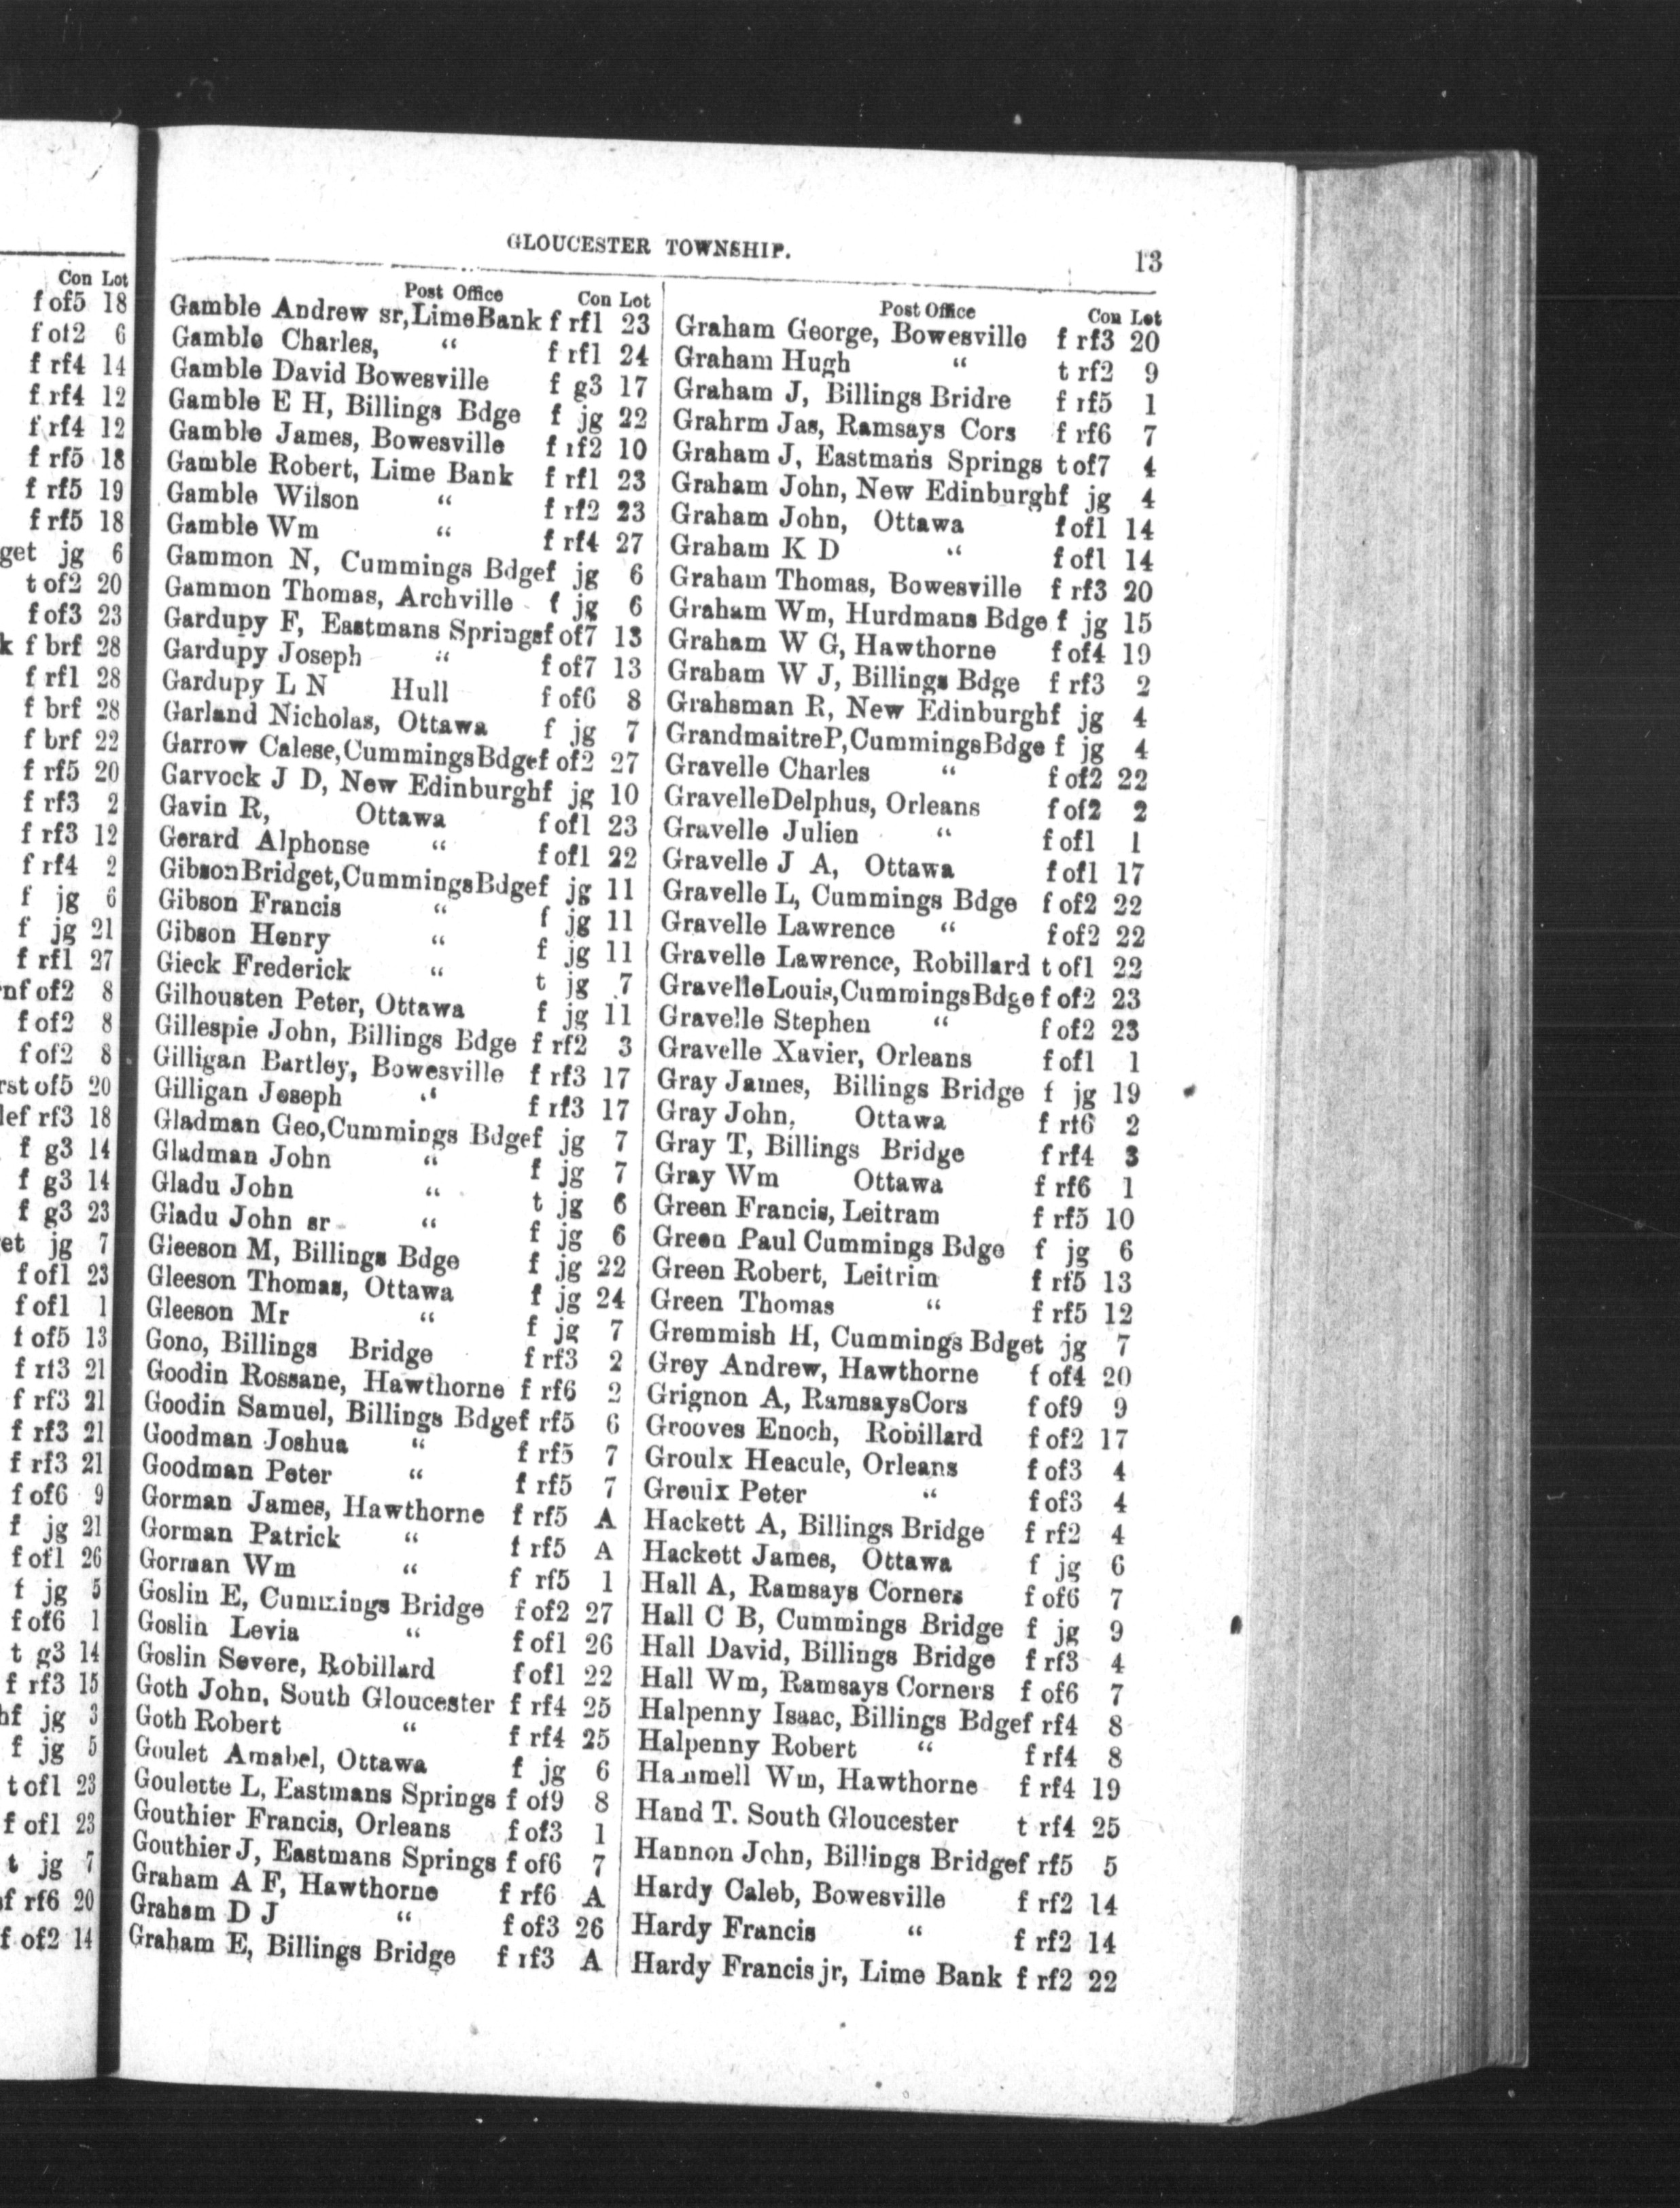 Con Lot
f of5 18
f of2 6
f rf4 14
f rf4 12
f rf4 12
f rf5 18
f rf5 19
f rf5 18
get jg 6
t of2 20
f of3 23
k f brf 28
f rf1 28
f brf 28
f brf 22
f rf5 20
f rf3 2
f rf3 12
f rf4 2
f jg 6
f jg 21
f rf1 27
nf of2 8
f of2 8
f of2 8
rst of5 20
lef rf3 18
f g3 14
f g3 14
f g3 23
et jg 7
f of1 23
f of1 1
t of5 13
f rf3 21
f rf3 21
f rf3 21
f rf3 21
f of6 9
f jg 21
f of1 26
f jg 5
f of6 1
t g3 14
f rf3 15
hf jg 3
f jg 5
t of1 23
f of1 23
t jg 7
f rf6 20
f of2 14
GLOUCESTER TOWNSHIP. 13
Post Office Con Lot
Gamble Andrew sr, Lime Bank f rf1 23
Gamble Charles, “ f rf1 24
Gamble David Bowesville f g3 17
Gamble E H, Billings Bdge f jg 22
Gamble James, Bowesville f rf2 10
Gamble Robert, Lime Bank f rf1 23
Gamble Wilson “ f rf2 23
Gamble Wm “ f rf4 27
Gammon N, Cummings Bdgef jg 6
Gammon Thomas, Archville f jg 6
Gardupy F, Eastmans Springsf of7 13
Gardupy Joseph “ f of7 13
Gardupy L N Hull f of6 8
Garland Nicholas, Ottawa f jg 7
Garrow Calese, Cummings Bdgef of2 27
Garvock J D, New Edinburghf jg 10
Gavin R, Ottawa f of1 23
Gerard Alphonse “ f of1 22
Gibson Bridget, Cummings Bdgef jg 11
Gibson Francis “ f jg 11
Gibson Henry “ f jg 11
Gieck Frederick “ t jg 7
Gilhousten Peter, Ottawa f jg 11
Gillespie John, Billings Bdge f rf2 3
Gilligan Bartley, Bowesville f rf3 17
Gilligan Joseph “ f rf3 17
Gladman Geo, Cummings Bdgef jg 7
Gladman John “ f jg 7
Gladu John “ t jg 6
Gladu John sr “ f jg 6
Gleeson M, Billings Bdge f jg 22
Gleeson Thomas, Ottawa f jg 24
Gleeson Mr “ f jg 7
Gono, Billings Bridge f rf3 2
Goodin Rossane, Hawthorne f rf6 2
Goodin Samuel, Billings Bdgef rf5 6
Goodman Joshua “ f rf5 7
Goodman Peter “ f rf5 7
Gorman James, Hawthorne f rf5 A
Gorman Patrick “ f rf5 A
Gorman Wm “ f rf5 1
Goslin E, Cummings Bridge f of2 27
Goslin Levia “ f of1 26
Goslin Severe, Robillard f of1 22
Goth John, South Gloucester f rf4 25
Goth Robert “ f rf4 25
Goulet Amabel, Ottawa f jg 6
Goulette L, Eastmans Springs f of9 8
Gouthier Francis, Orleans f of3 1
Gouthier J, Eastmans Springs f of6 7
Graham A F, Hawthorne f rf6 A
Graham D J “ f of3 26
Graham E, Billings Bridge f rf3 A
Post Office Con Lot
Graham George, Bowesville f rf3 20
Graham Hugh “ t rf2 9
Graham J, Billings Bridre f rf5 1
Grahrm Jas, Ramsays Cors f rf6 7
Graham J, Eastmans Springs t of7 4
Graham John, New Edinburghf jg 4
Graham John, Ottawa f of1 14
Graham K D “ f of1 14
Graham Thomas, Bowesville f rf3 20
Graham Wm, Hurdmans Bdge f jg 15
Graham W G, Hawthorne f of4 19
Graham W J, Billings Bdge f rf3 2
Grahsman R, New Edinburghf jg 4
Grandmaitre P, Cummings Bdge f jg 4
Gravelle Charles “ f of2 22
Gravelle Delphus, Orleans f of2 2
Gravelle Julien “ f of1 1
Gravelle J A, Ottawa f of1 17
Gravelle L, Cummings Bdge f of2 22
Gravelle Lawrence “ f of2 22
Gravelle Lawrence, Robillard t of1 22
Gravelle Louis, Cummings Bdge f of2 23
Gravelle Stephen “ f of2 23
Gravelle Xavier, Orleans f of1 1
Gray James, Billings Bridge f jg 19
Gray John, Ottawa f rf6 2
Gray T, Billings Bridge f rf4 3
Gray Wm Ottawa f rf6 1
Green Francis, Leitram f rf5 10
Green Paul Cummings Bdge f jg 6
Green Robert, Leitrim f rf5 13
Green Thomas “ f rf5 12
Gremmish H, Cummings Bdget jg 7
Grey Andrew, Hawthorne f of4 20
Grignon A, Ramsays Cors f of9 9
Grooves Enoch, Robillard f of2 17
Groulx Heacule, Orleans f of3 4
Groulx Peter “ f of3 4
Hackett A, Billings Bridge f rf2 4
Hackett James, Ottawa f jg 6
Hall A, Ramsays Corners f of6 7
Hall C B, Cummings Bridge f jg 9
Hall David, Billings Bridge f rf3 4
Hall Wm, Ramsays Corners f of6 7
Halpenny Isaac, Billings Bdgef rf4 8
Halpenny Robert “ f rf4 8
Hammell Wm, Hawthorne f rf4 19
Hand T. South Gloucester t rf4 25
Hannon John, Billings Bridgef rf5 5
Hardy Caleb, Bowesville f rf2 14
Hardy Francis “ f rf2 14
Hardy Francis jr, Lime Bank f rf2 22